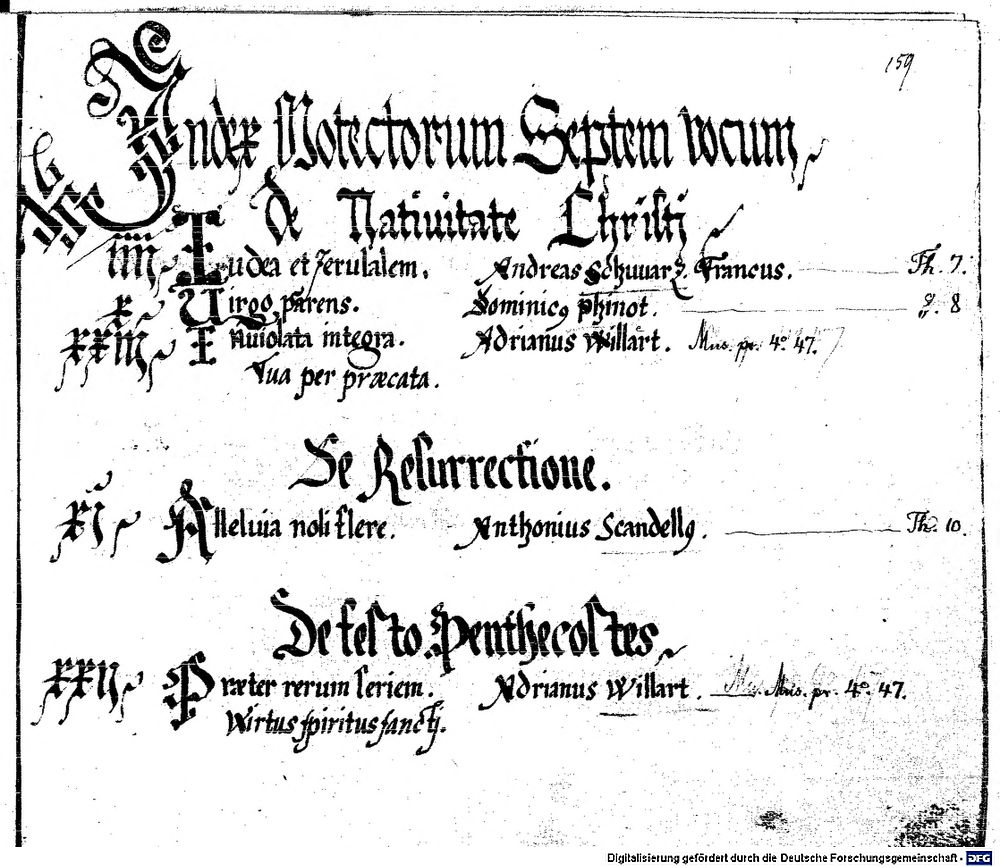 159
Index Motectorum Septem vocum
de Nativitate Christi
IIII Iudea et Jerusalem. Andreas Schwarz Francus. Th. 7.
X Uirgo parens. Dominicus Phinot. " 8
XXIII Inviolata integra. Adrianus Willart. Mus. pr. 4º 47.
Tua per præcata.
De Resurrectione.
XI Alleluia noli flere. Anthonius Scandellus. Th. 10.
De festo Penthecostes
XXII Præter rerum seriem. Adrianus Willart. Mus. pr. 4º 47.
Wirtus spiritus sancti.
Digitalisierung gefördert durch die Deutsche Forschungsgemeinschaft - DFG